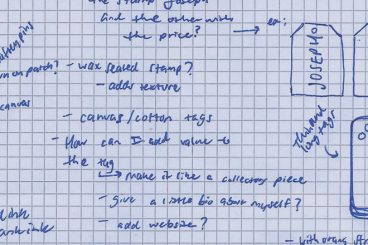 the stamp Joseph
and the other with
the price?
ex:
JOSEPH
- wax sealed stamp?
- adds texture
on patch?
canvas
- canvas/cotton tags
- How can I add value to
the tag
make it like a collectors piece
- give a little bio about myself?
- add website?
Thin and
long tags
ink